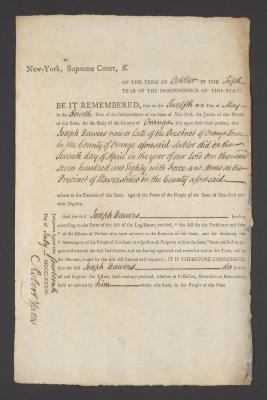 New-York, Supreme Court, ss.
OF THE TERM OF October IN THE Fifth
YEAR OF THE INDEPENDENCE OF THIS STATE.
BE IT REMEMBERED, that on the Twelfth Day of May
In the Fourth Year of the Independence of the State of New-York, the Jurors of the People
of this State, for the Body of the County of Orange did upon their Oath present, that
Joseph Bawers now or late of the Precinct of Orange Town
in the County of Orange aforesaid Sadler did on the
Seventh day of April in the year of our Lord one thousand
seven hundred and Eighty with Force and Arms at the
Precinct of Haverstraw in the County aforesaid
adhere to the Enemies of this State, against the Peace of the People of the State of New-York and
their Dignity.
And the said Joseph Bawers having
according to the Form of the Act of the Legislature, entitled, "An Act for the Forfeiture and Sale
"of the Estates of Persons who have adhered to the Enemies of this State, and for declaring the
"Sovereignty of the People of this State in respect to all Property within the same," been notified to appear and traverse the said Indictment, and not having appeared and traversed within the Time, and in
the Manner, limited by the said Act limited and required; IT IS THEREFORE CONSIDERED,
that the said Joseph Bawers do forfeit
all and singular the Estate, both real and personal, whether in Possession, Reversion or Remainder,
held or claimed by him within this State, to the People of this State
Judgment signed this fourteenth
Day of July MDCCLXXXIII.
Robert Yates